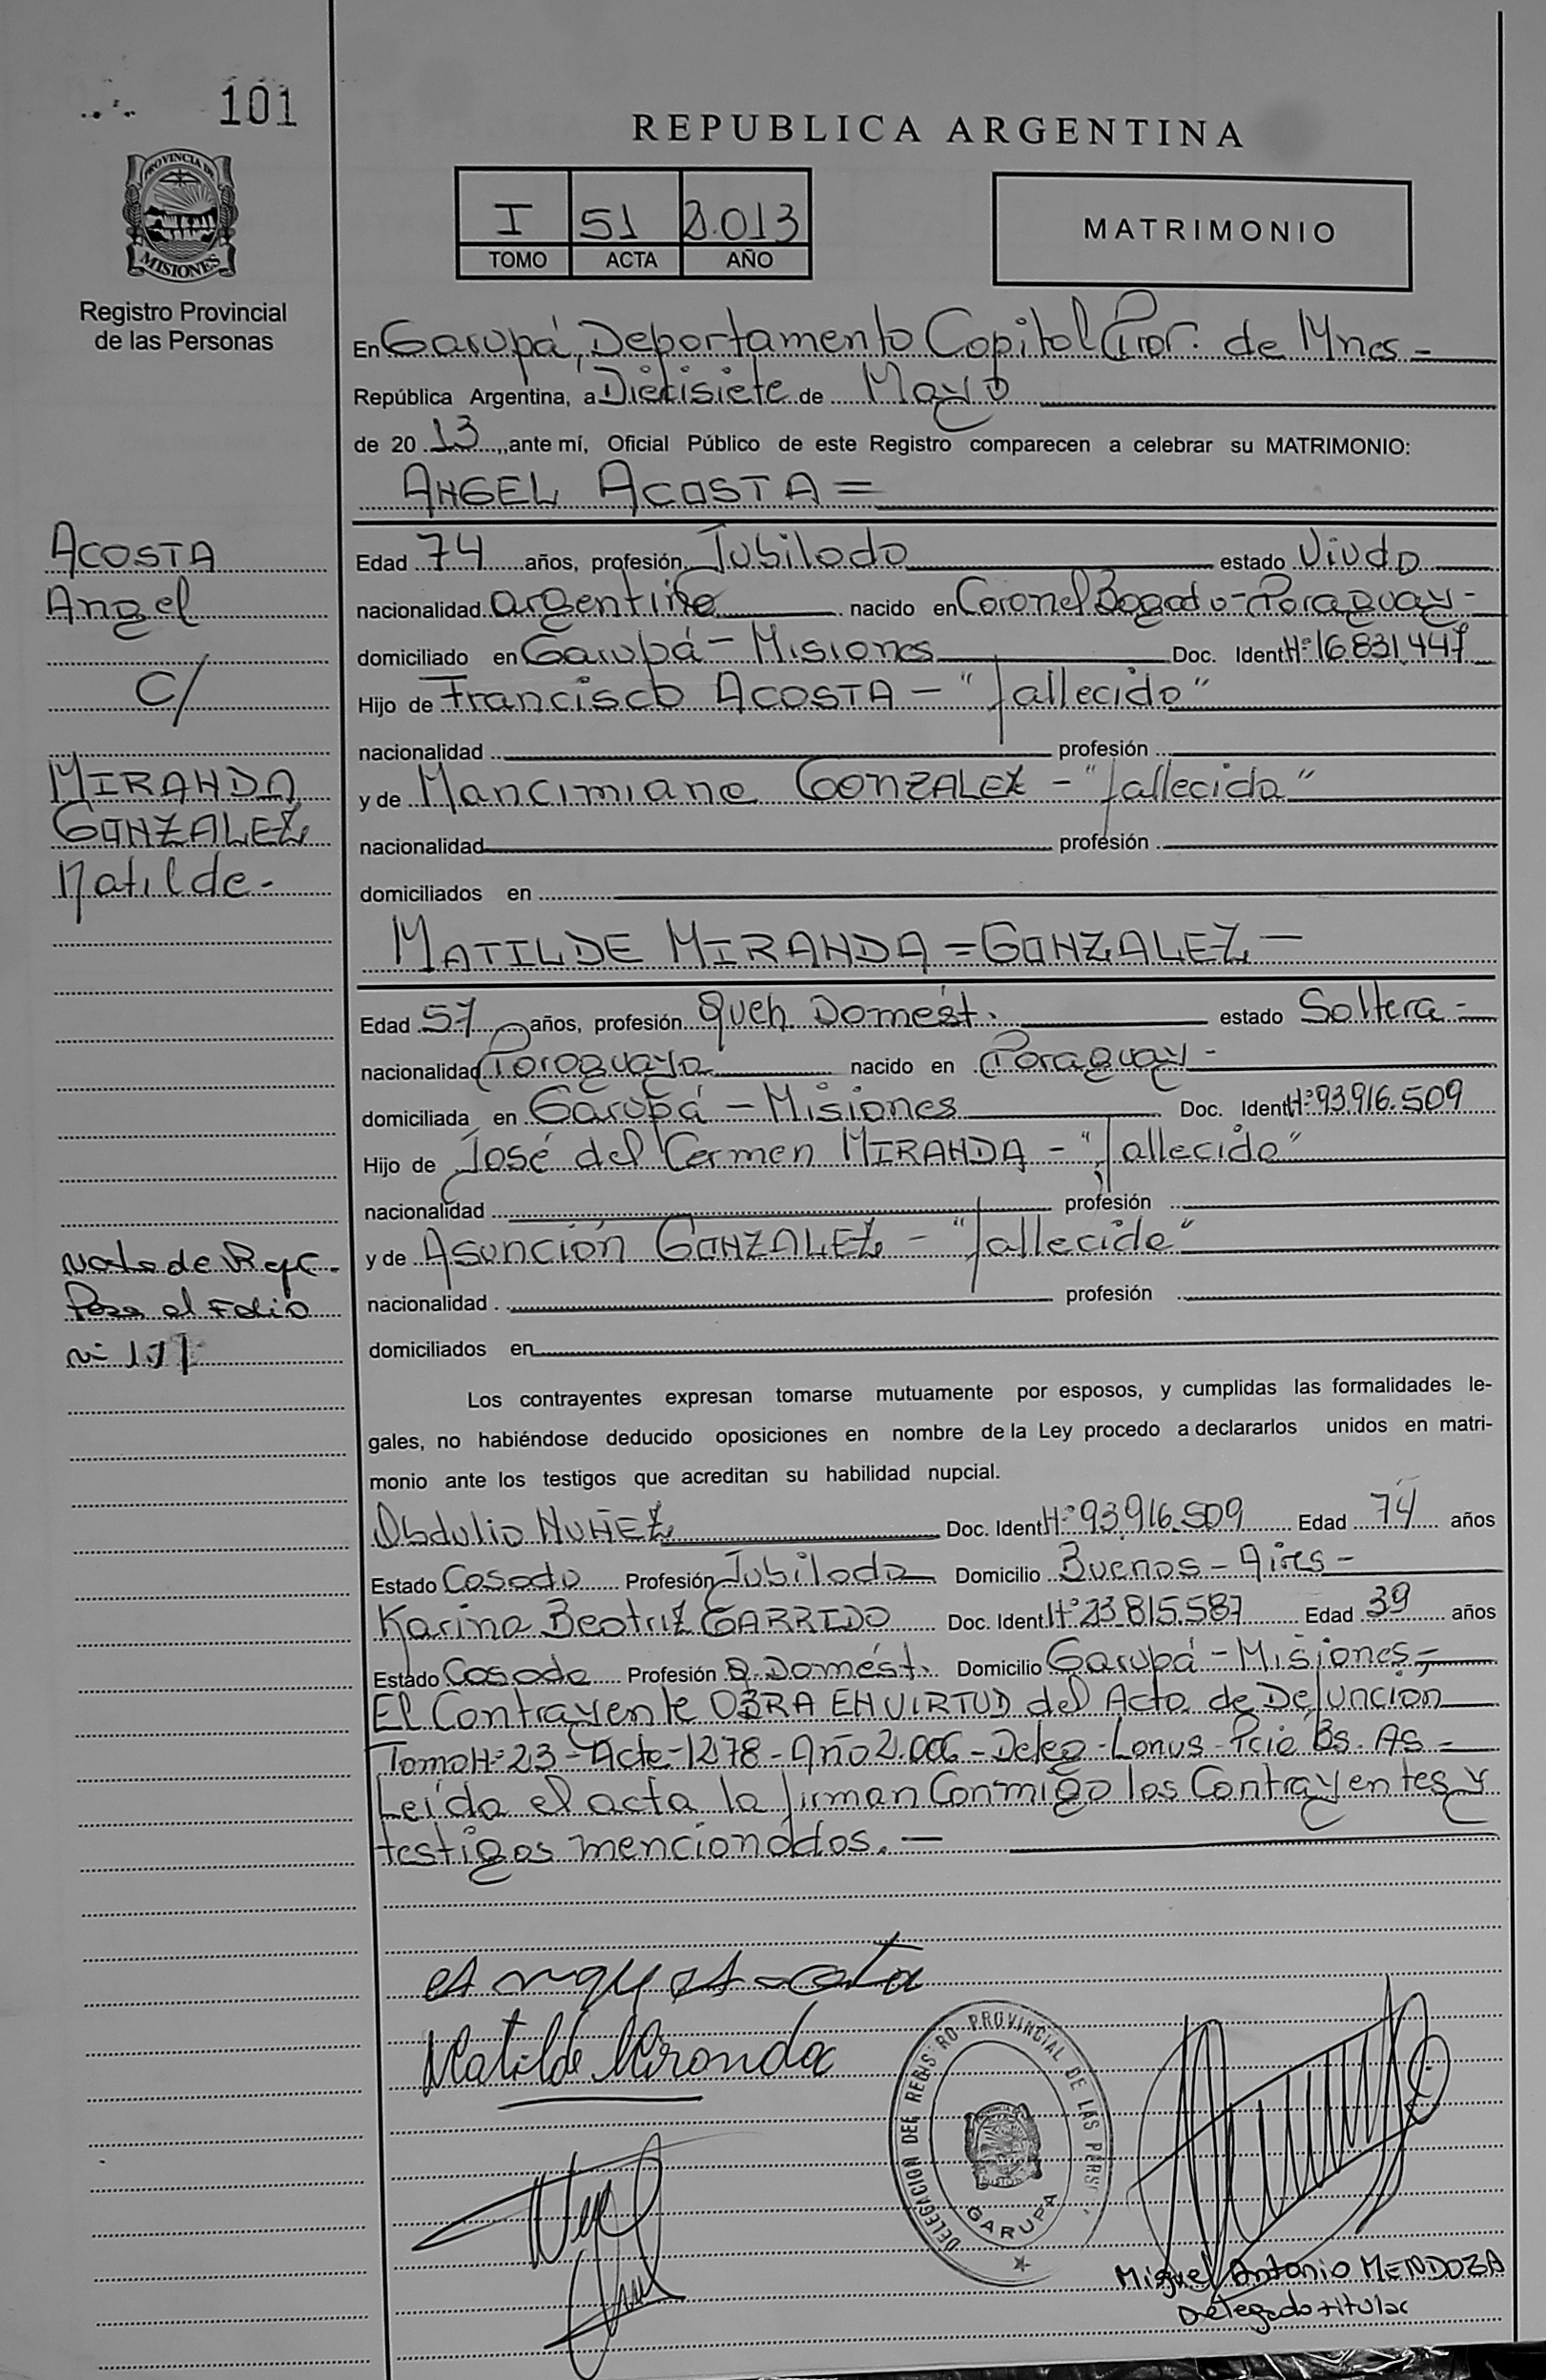 101
REPUBLICA ARGENTINA
PROVINCIA DE
MISIONES
Registro Provincial
de las Personas
I 51 2.013
TOMO ACTA AÑO
MATRIMONIO
En Garupá, Departamento Capital Prov. de Mnes -
República Argentina, a Diecisiete de Mayo
de 20 13 ,ante mí, Oficial Público de este Registro comparecen a celebrar su MATRIMONIO:
ANGEL ACOSTA =
ACOSTA
Angel
C/
MIRANDA
GONZALEZ
Matilde -
Edad 74 años, profesión Jubilado estado Viudo
nacionalidad argentina nacido en Coronel Bogado - Paraguay -
domiciliado en Garupá - Misiones Doc. Ident Nº 16.831.447
Hijo de Francisco ACOSTA - "fallecido"
nacionalidad profesión
y de Mancimiana GONZALEZ - "fallecida"
nacionalidad profesión
domiciliados en
MATILDE MIRANDA = GONZALEZ -
Edad 57 años, profesión Queh. Domést. estado Soltera -
nacionalidad Paraguaya nacido en Paraguay -
domiciliada en Garupá - Misiones Doc. Ident Nº 93.916.509
Hijo de José del Carmen MIRANDA - "fallecido"
nacionalidad profesión
y de Asunción GONZALEZ - "fallecida"
nacionalidad profesión
domiciliados en
Nota de
Pasa al Folio
Nº
Los contrayentes expresan tomarse mutuamente por esposos, y cumplidas las formalidades le-
gales, no habiéndose deducido oposiciones en nombre de la Ley procedo a declararlos unidos en matri-
monio ante los testigos que acreditan su habilidad nupcial.
Obdulio NUÑEZ Doc. Ident Nº 93.916.509 Edad 74 años
Estado Casado Profesión Jubilado Domicilio Buenos - Aires -
Karina Beatriz GARRIDO Doc. Ident Nº 23.815.587 Edad 39 años
Estado Casada Profesión Q. Domést. Domicilio Garupá - Misiones -
El Contrayente OBRA EN VIRTUD del Acta de Defunción
Tomo Nº 23 - Acta - 1278 - Año 2.006 - Deleg - Lanus - Pcia Bs. As -
Leída el acta la firman Conmigo los Contrayentes y
testigos mencionados. -
Matilde Miranda
DELEGACION DEL REGISTRO PROVINCIAL DE LAS PERS
GARUPA
Miguel Antonio MENDOZA
Delegado titular